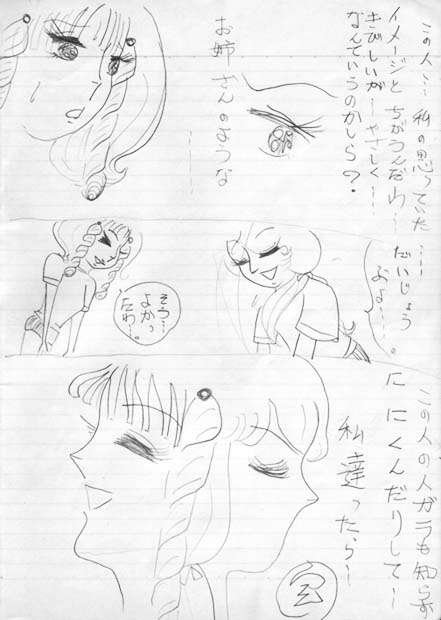 この人…私の思っていた
イメージとちがうんだわ…
きびしいが…やさしく…
なんていうのかしら?
お姉さんのような
……
……だいじょう
ぶよ…。
そう…
よかっ
たわ…。
この人の人ガラも知らず
ににくんだりして…
私達ったら…